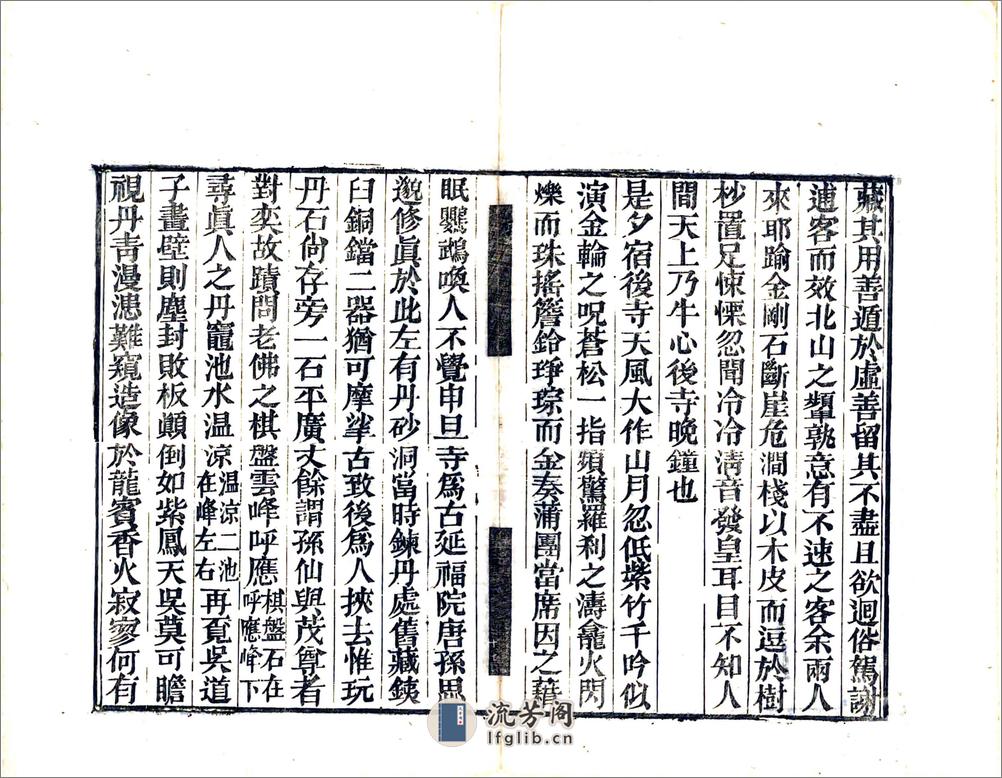 藏其用善遁於虛善留其不盡且欲迴俗駕謝
逋客而效北山之顰孰意有不速之客余兩人
來耶踰金剛石斷崖危澗棧以木皮而逗於樹
杪置足悚慄忽聞冷冷清音發皇耳目不知人
間天上乃牛心後寺晚鐘也
是夕宿後寺天風大作山月忽低紫竹千吟似
演金輪之呪蒼松一指頭驚羅刹之濤龕火閃
爍而珠搖簷鈴琤琮而金奏蒲團當席因之藉
眠鸚鵡喚人不覺申旦寺爲古延福院唐孫思
邈修眞於此左有丹砂洞當時鍊丹處舊藏銕
臼銅鐺二器猶可摩挲古致後爲人挾去惟玩
丹石尙存旁一石平廣丈餘謂孫仙與茂尊者
對奕故蹟問老佛之棋盤雲峰呼應棋盤石在呼應峰下
尋眞人之丹竈池水温涼温涼二池在峰左右再覔吳道
子畫壁則塵封敗板顚倒如紫鳳天吳莫可瞻
視丹靑漫漶難窺造像於龍賓香火寂寥何有
流芳阁
lfglib.cn